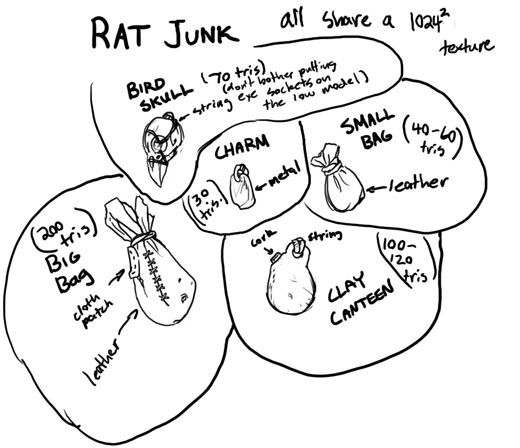 RAT JUNK
all share a 1024²
texture
BIRD
SKULL
(70 tris)
(don't bother putting
string eye sockets on
the low model)
CHARM
(30
tris)
metal
SMALL
BAG
(40-60
tris)
leather
(200
tris)
BIG
Bag
cloth
patch
leather
cork
string
(100-
120
tris)
CLAY
CANTEEN